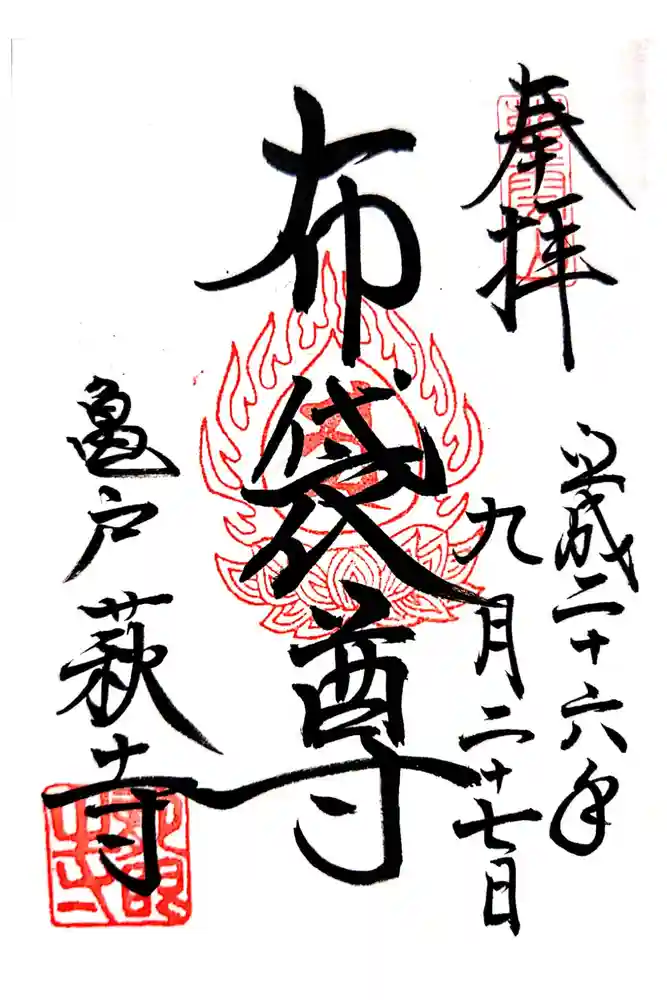 奉拝
平成二十六年
九月二十七日
布袋尊
亀戸 萩寺